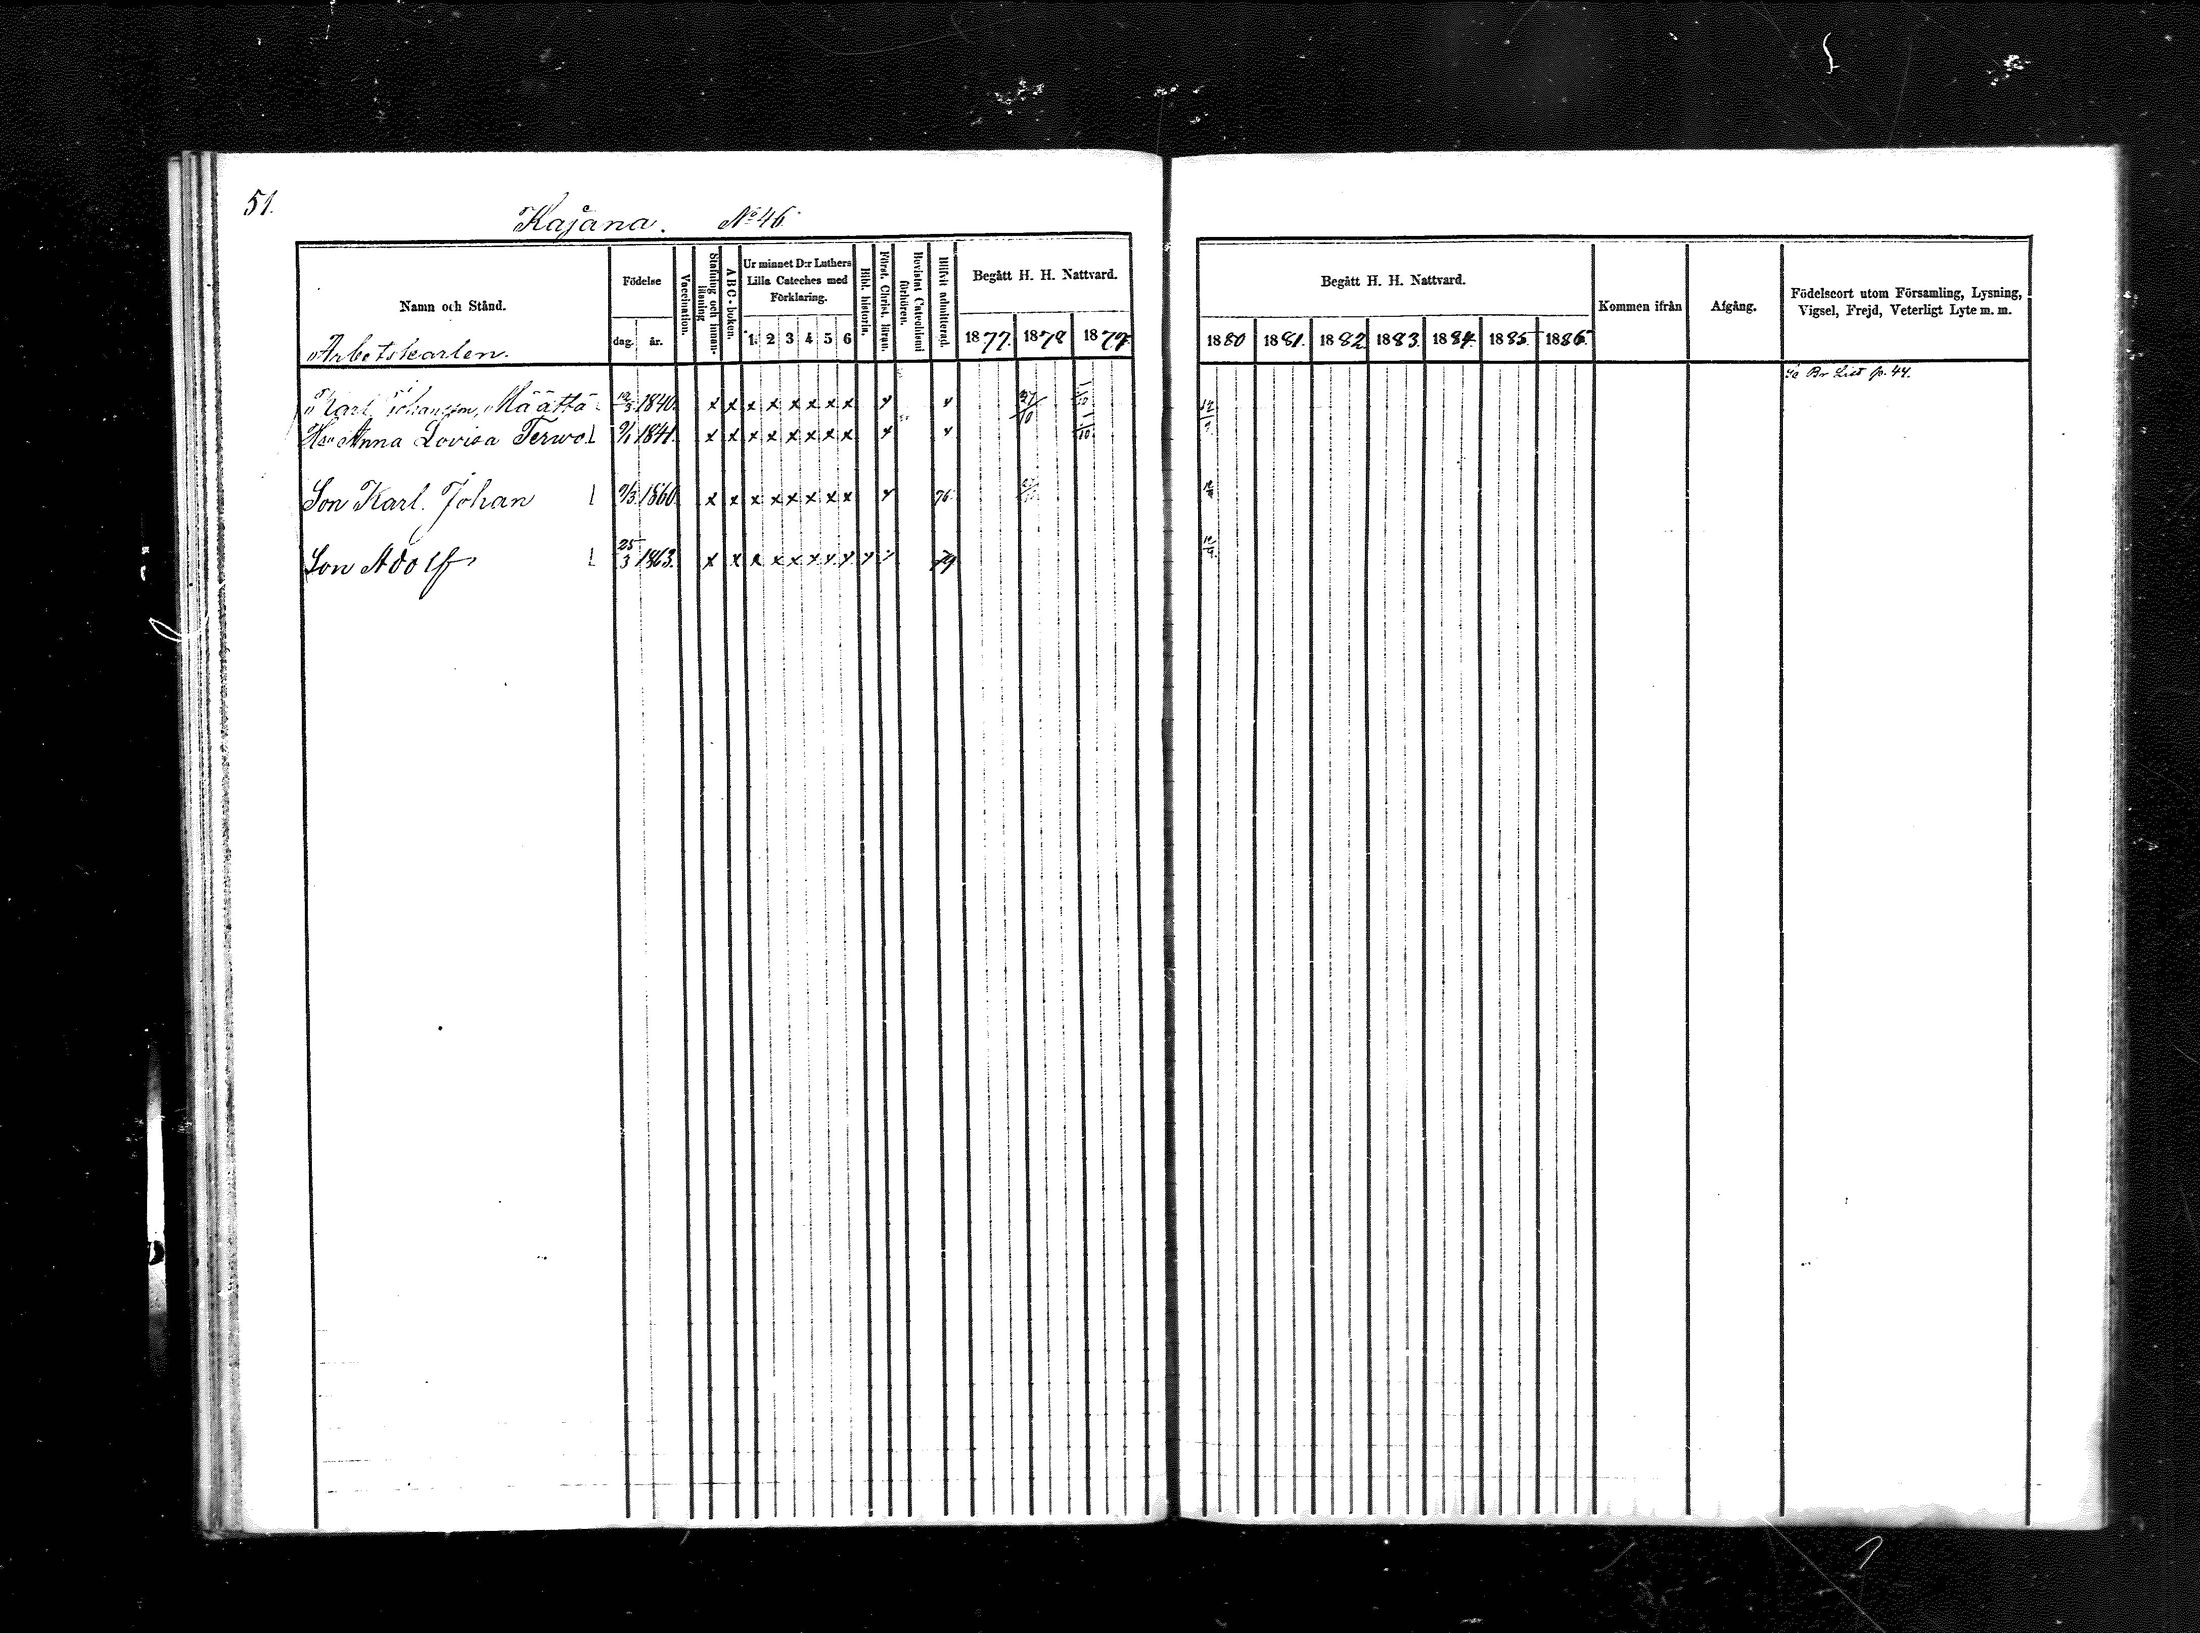 51.
Kajana. No 46.
Namn och Stånd.
Födelse
dag. år.
Vaccination.
Stafning och innan-läsning
ABC-boken.
Ur minnet D:r Luthers Lilla Cateches med Förklaring.
1. 2 3 4 5 6
Bibl. historia.
Först. Christ. läran.
Bevistat Catechismi förhören.
Blifvit admitterad.
Begått H. H. Nattvard.
1877. 1878 1879
Begått H. H. Nattvard.
1880 1881. 1882 1883. 1884. 1885. 1886.
Kommen ifrån
Afgång.
Födelseort utom Församling, Lysning, Vigsel, Frejd, Veterligt Lyte m. m.
Arbetskarlen.
Se Br List p. 44.
Karl Johansson Määttä 12/3 1840. x x x x x x x x x x 27/10 1/10 12/9
Hu Anna Lovisa Terwo 9/1 1841. x x x x x x x x x x 1/10
Son Karl Johan 9/3 1860. x x x x x x x x x 76. 12/9
Son Adolf 25/3 1863. x x x x x x x x x x 79 12/9